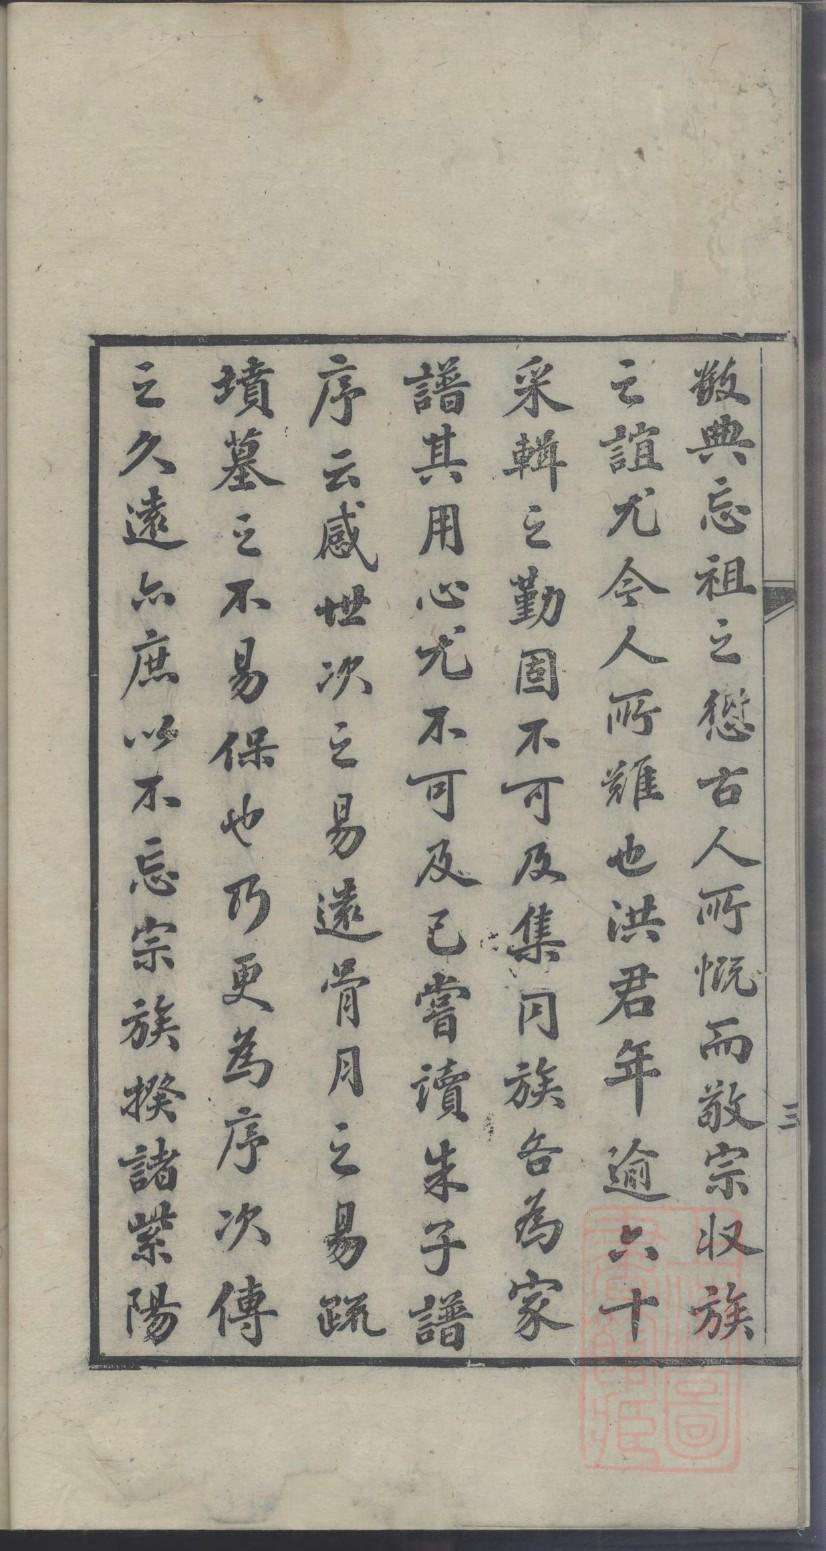 數典忘祖之愆古人所慨而敬宗收族
之誼尤今人所難也洪君年逾六十
采輯之勤固不可及集同族各為家
譜其用心尤不可及已嘗讀朱子譜
序云感世次之易遠骨月之易疏
墳墓之不易保也乃更為序次傳
之久遠亦庶以不忘宗族揆諸紫陽
三